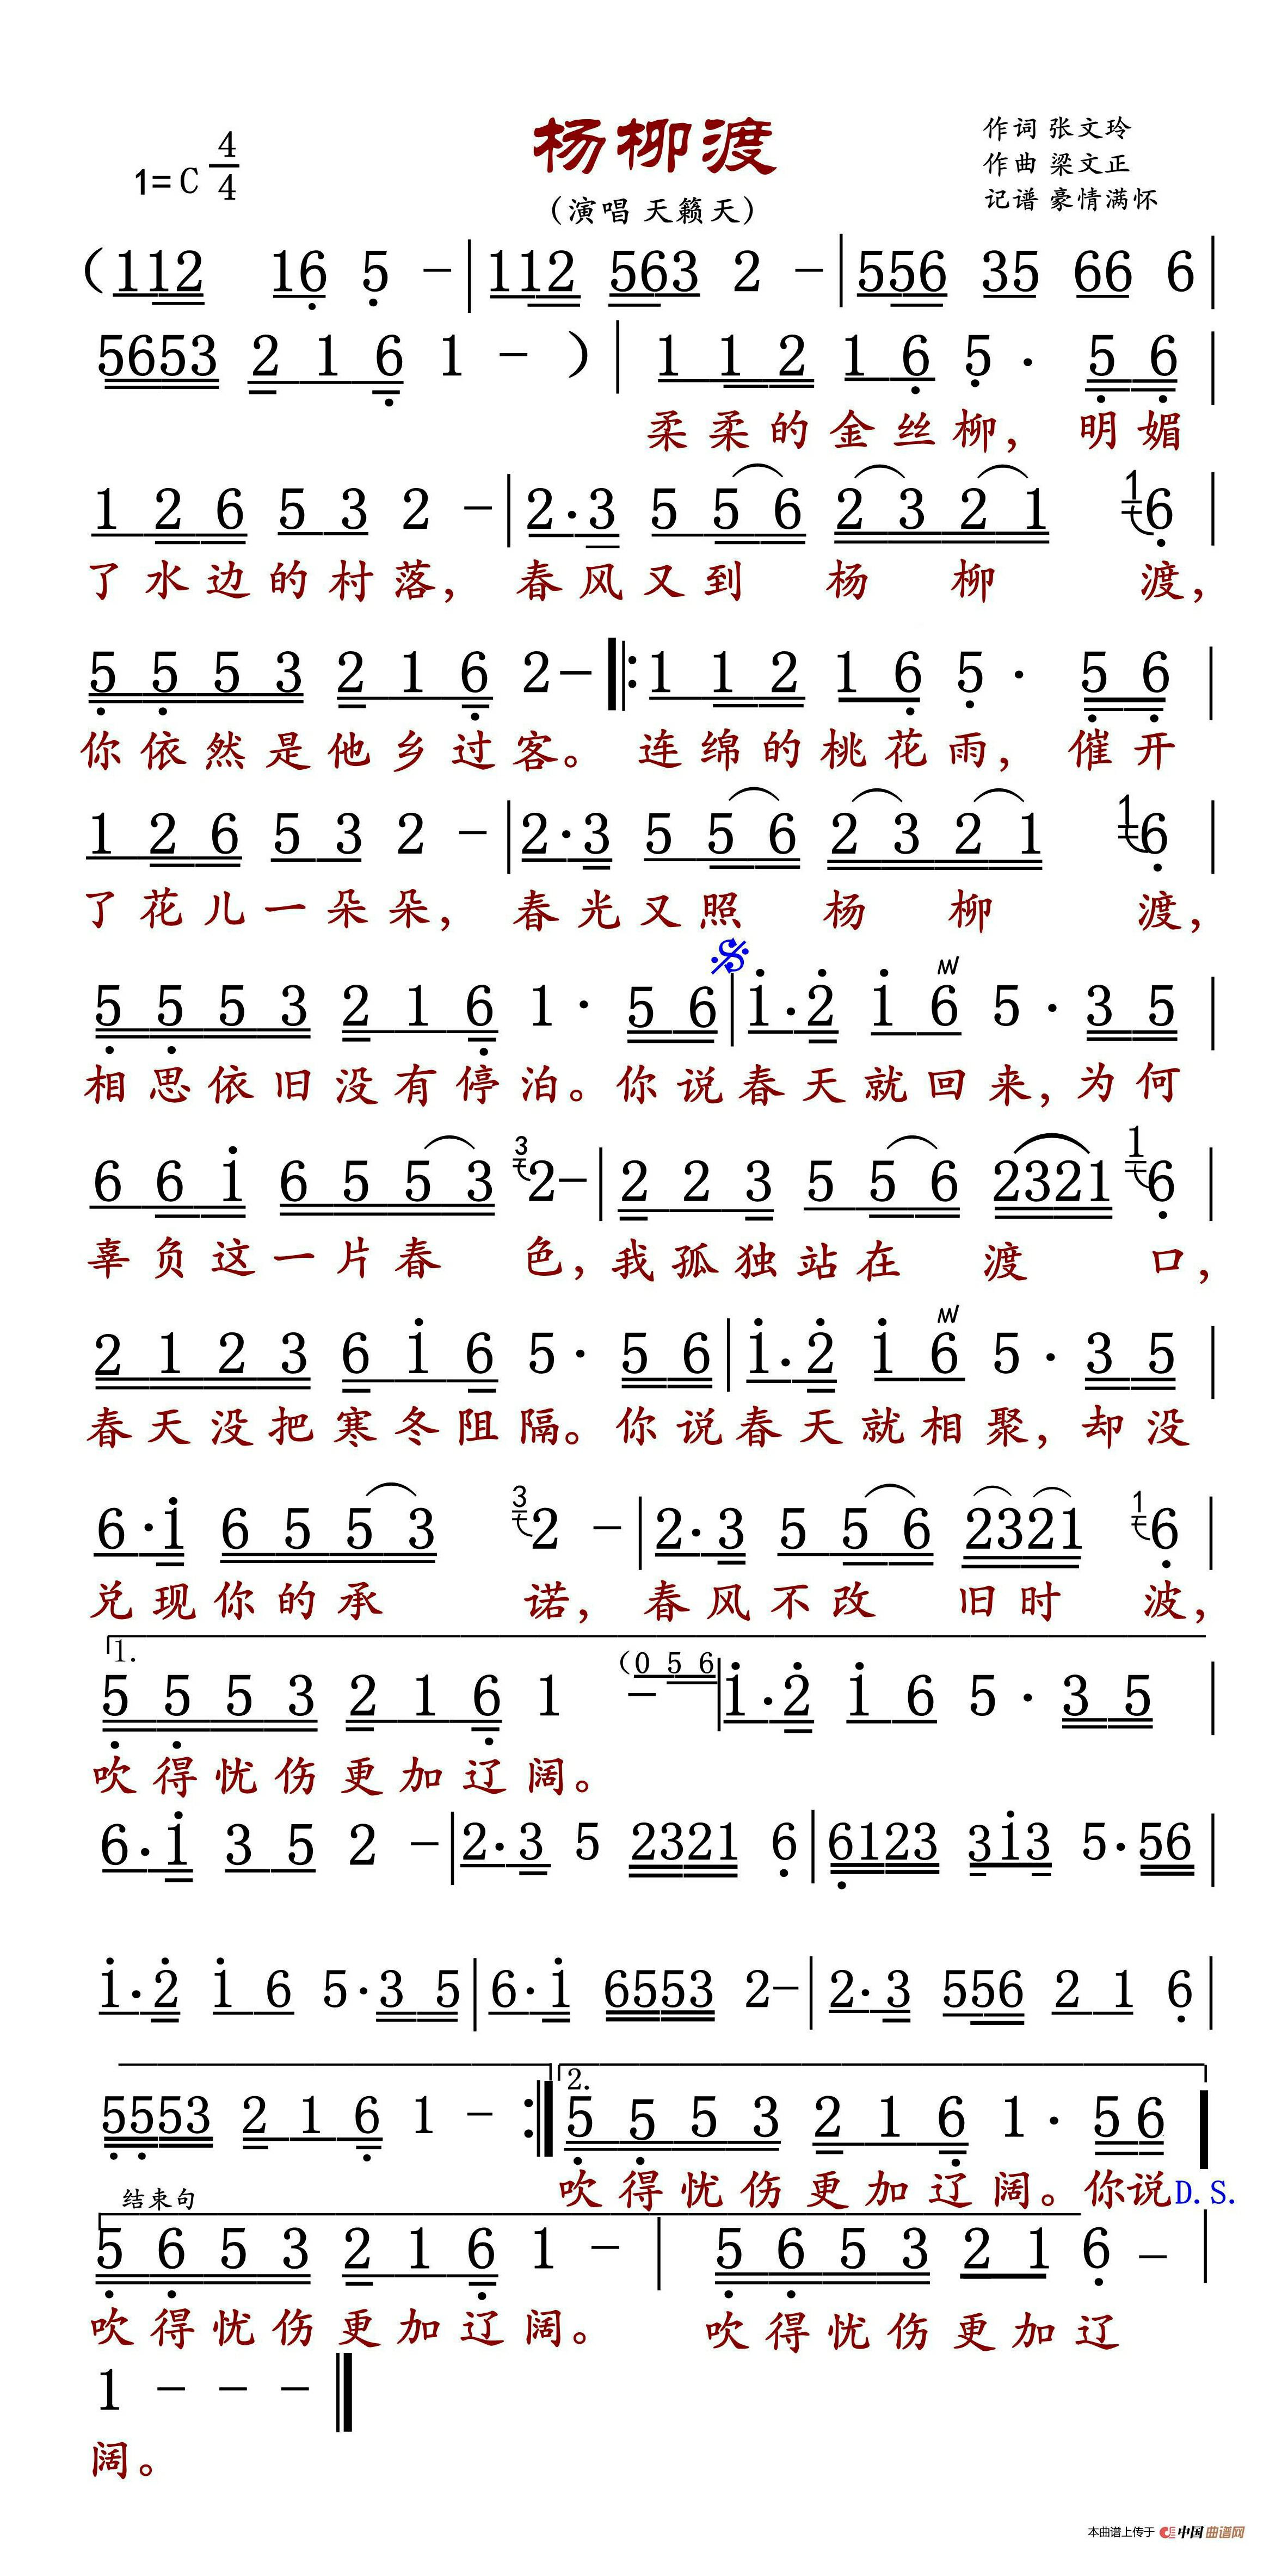 杨柳渡
1=C 4/4
(演唱 天籁天)
作词 张文玲
作曲 梁文正
记谱 豪情满怀
(112 16 5 - | 112 563 2 - | 556 35 66 6 |
5653 2 1 6 1 - ) | 1 1 2 1 6 5 · 5 6 |
柔柔的金丝柳，明媚
1 2 6 5 3 2 - | 2·3 5 5 6 2 3 2 1 1 6 |
了水边的村落，春风又到杨柳渡，
5 5 5 3 2 1 6 2 - |: 1 1 2 1 6 5 · 5 6 |
你依然是他乡过客。连绵的桃花雨，催开
1 2 6 5 3 2 - | 2·3 5 5 6 2 3 2 1 1 6 |
了花儿一朵朵，春光又照杨柳渡，
5 5 5 3 2 1 6 1 · 5 6 | 1·2 1 6 5 · 3 5 |
相思依旧没有停泊。你说春天就回来，为何
6 6 1 6 5 5 3 3 2 - | 2 2 3 5 5 6 2321 1 6 |
辜负这一片春色，我孤独站在渡口，
2 1 2 3 6 1 6 5 · 5 6 | 1·2 1 6 5 · 3 5 |
春天没把寒冬阻隔。你说春天就相聚，却没
6·1 6 5 5 3 3 2 - | 2·3 5 5 6 2321 1 6 |
兑现你的承诺，春风不改旧时波，
1.
5 5 5 3 2 1 6 1 - (0 5 6 | 1·2 1 6 5 · 3 5 |
吹得忧伤更加辽阔。
6·1 3 5 2 - | 2·3 5 2321 6 | 6123 313 5·56 |
1·2 1 6 5·3 5 | 6·1 6553 2 - | 2·3 556 2 1 6 |
2.
5553 2 1 6 1 - :| 5 5 5 3 2 1 6 1 · 5 6 |
吹得忧伤更加辽阔。你说D.S.
结束句
5 6 5 3 2 1 6 1 - | 5 6 5 3 2 1 6 - |
吹得忧伤更加辽阔。吹得忧伤更加辽
1 - - - ‖
阔。
本曲谱上传于 中国曲谱网